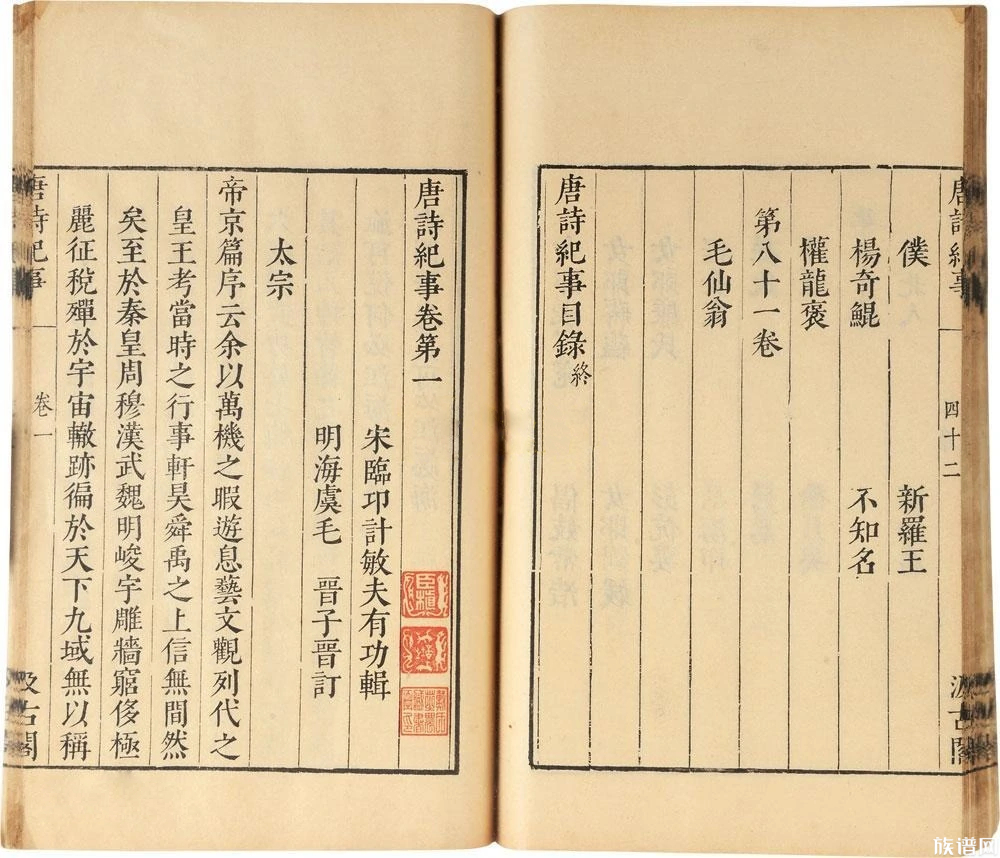 唐詩紀事
四十二
汲古閣
僕 新羅王
楊奇鯤 不知名
權龍褒
第八十一卷
毛仙翁
唐詩紀事目錄終
唐詩紀事卷第一
宋臨卭計敏夫有功輯
明海虞毛 晉子晉訂
太宗
帝京篇序云余以萬機之暇遊息藝文觀列代之
皇王考當時之行事軒昊舜禹之上信無間然
矣至於秦皇周穆漢武魏明峻宇雕牆窮侈極
麗征稅殫於宇宙轍跡徧於天下九域無以稱
唐詩紀事
卷一
汲古閣
族谱网